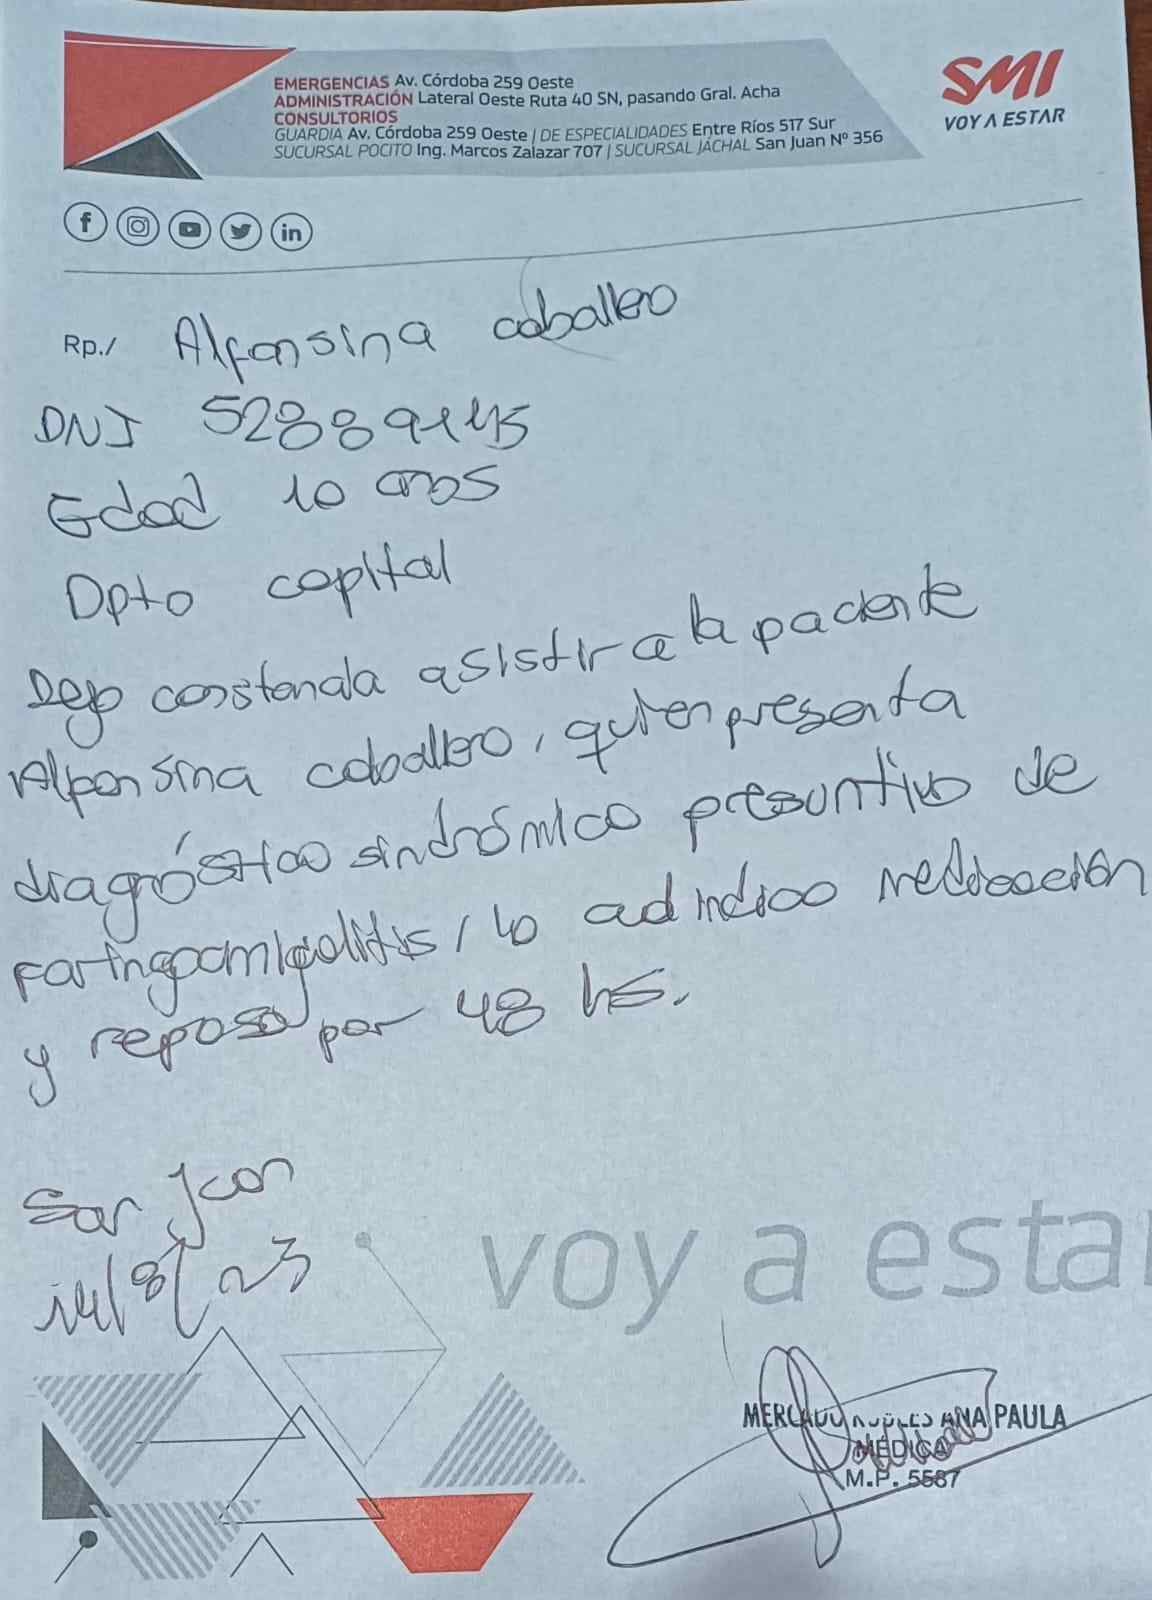 EMERGENCIAS Av. Córdoba 259 Oeste
ADMINISTRACIÓN Lateral Oeste Ruta 40 SN, pasando Gral. Acha
CONSULTORIOS
GUARDIA Av. Córdoba 259 Oeste | DE ESPECIALIDADES Entre Ríos 517 Sur
SUCURSAL POCITO Ing. Marcos Zalazar 707 | SUCURSAL JÁCHAL San Juan Nº 356
SMI
VOY A ESTAR
Rp./ Alfonsina caballero
DNI 52889145
Edad 10 años
Dpto capital
Dejo constancia asistir a la paciente
Alfonsina caballero, quien presenta
diagnóstico sindrómico presuntivo de
faringoamigalitis, lo cual indico medicación
y reposo por 48 hs.
San Juan
14/8/23
voy a estar
MERCADO ANA PAULA
MÉDICA
M.P. 5587